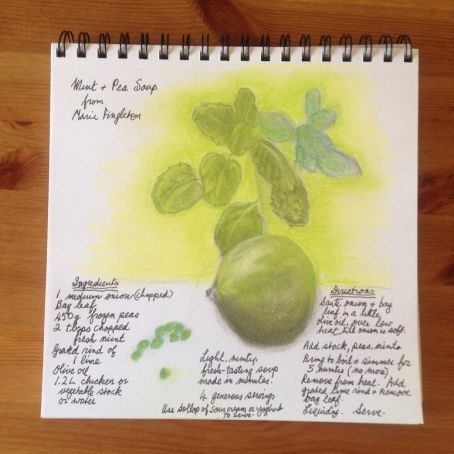 Mint + Pea Soup
from
Marie Fingleton
Ingredients
1 medium onion (chopped)
Bay leaf
450g frozen peas
2 tbsps chopped
fresh mint
Grated rind of
1 lime
Olive oil
1.2L chicken or
vegetable stock
or water
Light, minty,
fresh-tasting soup
made in minutes.
4 generous servings
Use dollop of sour cream or yoghurt
to serve.
Directions
Sauté onion + bay
leaf in a little
olive oil, over low
heat, till onion is soft.
Add stock, peas, mint +
Bring to boil + simmer for
5 minutes (no more)
Remove from heat. Add
grated lime rind + remove
bay leaf.
Liquidize. Serve.